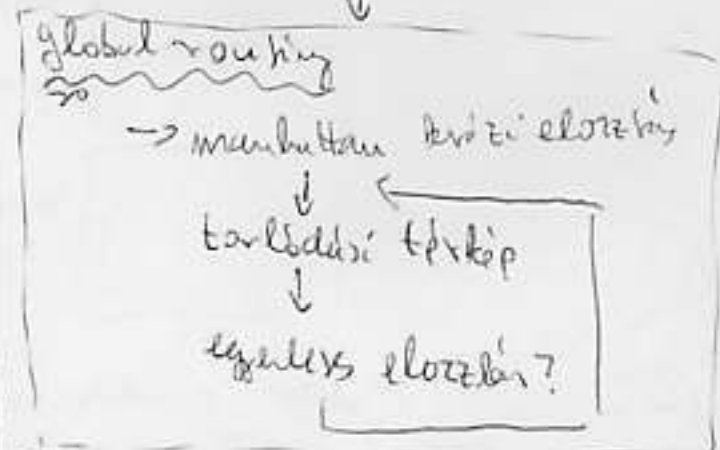 global routing
→ manhattan kvázi elosztás
torlódási térkép
egyenletes elosztás?